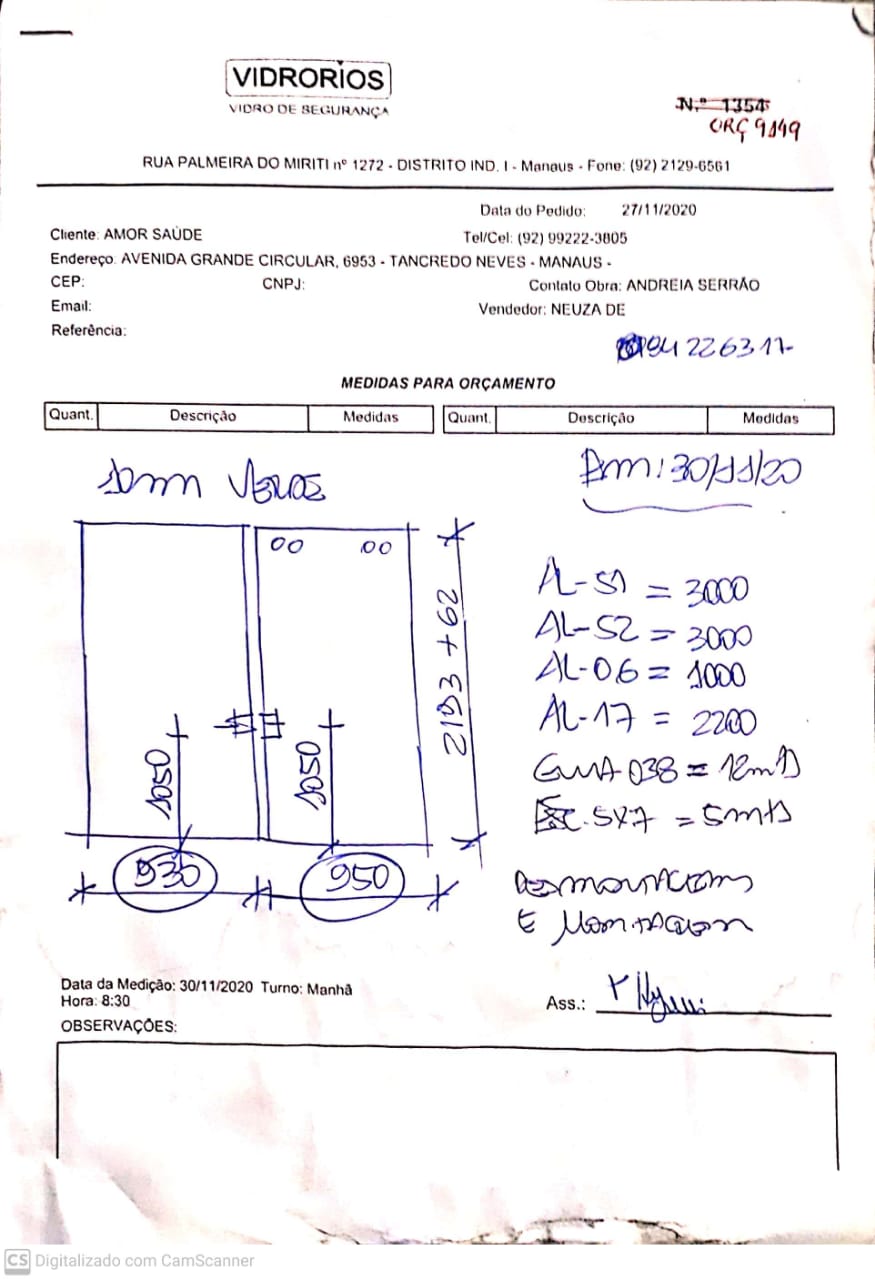 VIDRORIOS
VIDRO DE SEGURANÇA
N.º 1354
ORÇ 9149
RUA PALMEIRA DO MIRITI nº 1272 - DISTRITO IND. I - Manaus - Fone: (92) 2129-6561
Data do Pedido: 27/11/2020
Cliente: AMOR SAÚDE
Tel/Cel: (92) 99222-3805
Endereço: AVENIDA GRANDE CIRCULAR, 6953 - TANCREDO NEVES - MANAUS -
CEP: CNPJ: Contato Obra: ANDREIA SERRÃO
Email: Vendedor: NEUZA DE
Referência:
MEDIDAS PARA ORÇAMENTO
Quant. Descrição Medidas Quant. Descrição Medidas
10mm
30/11/20
2193 + 62
AL-51 = 3000
AL-52 = 3000
AL-06 = 1000
AL-17 = 2200
GUIA 038 = 12mts
5x7 = 5mts
1050 1050
930 950
DESMONTAGEM
E MONTAGEM
Data da Medição: 30/11/2020 Turno: Manhã
Hora: 8:30
Ass.:
OBSERVAÇÕES:
CS Digitalizado com CamScanner